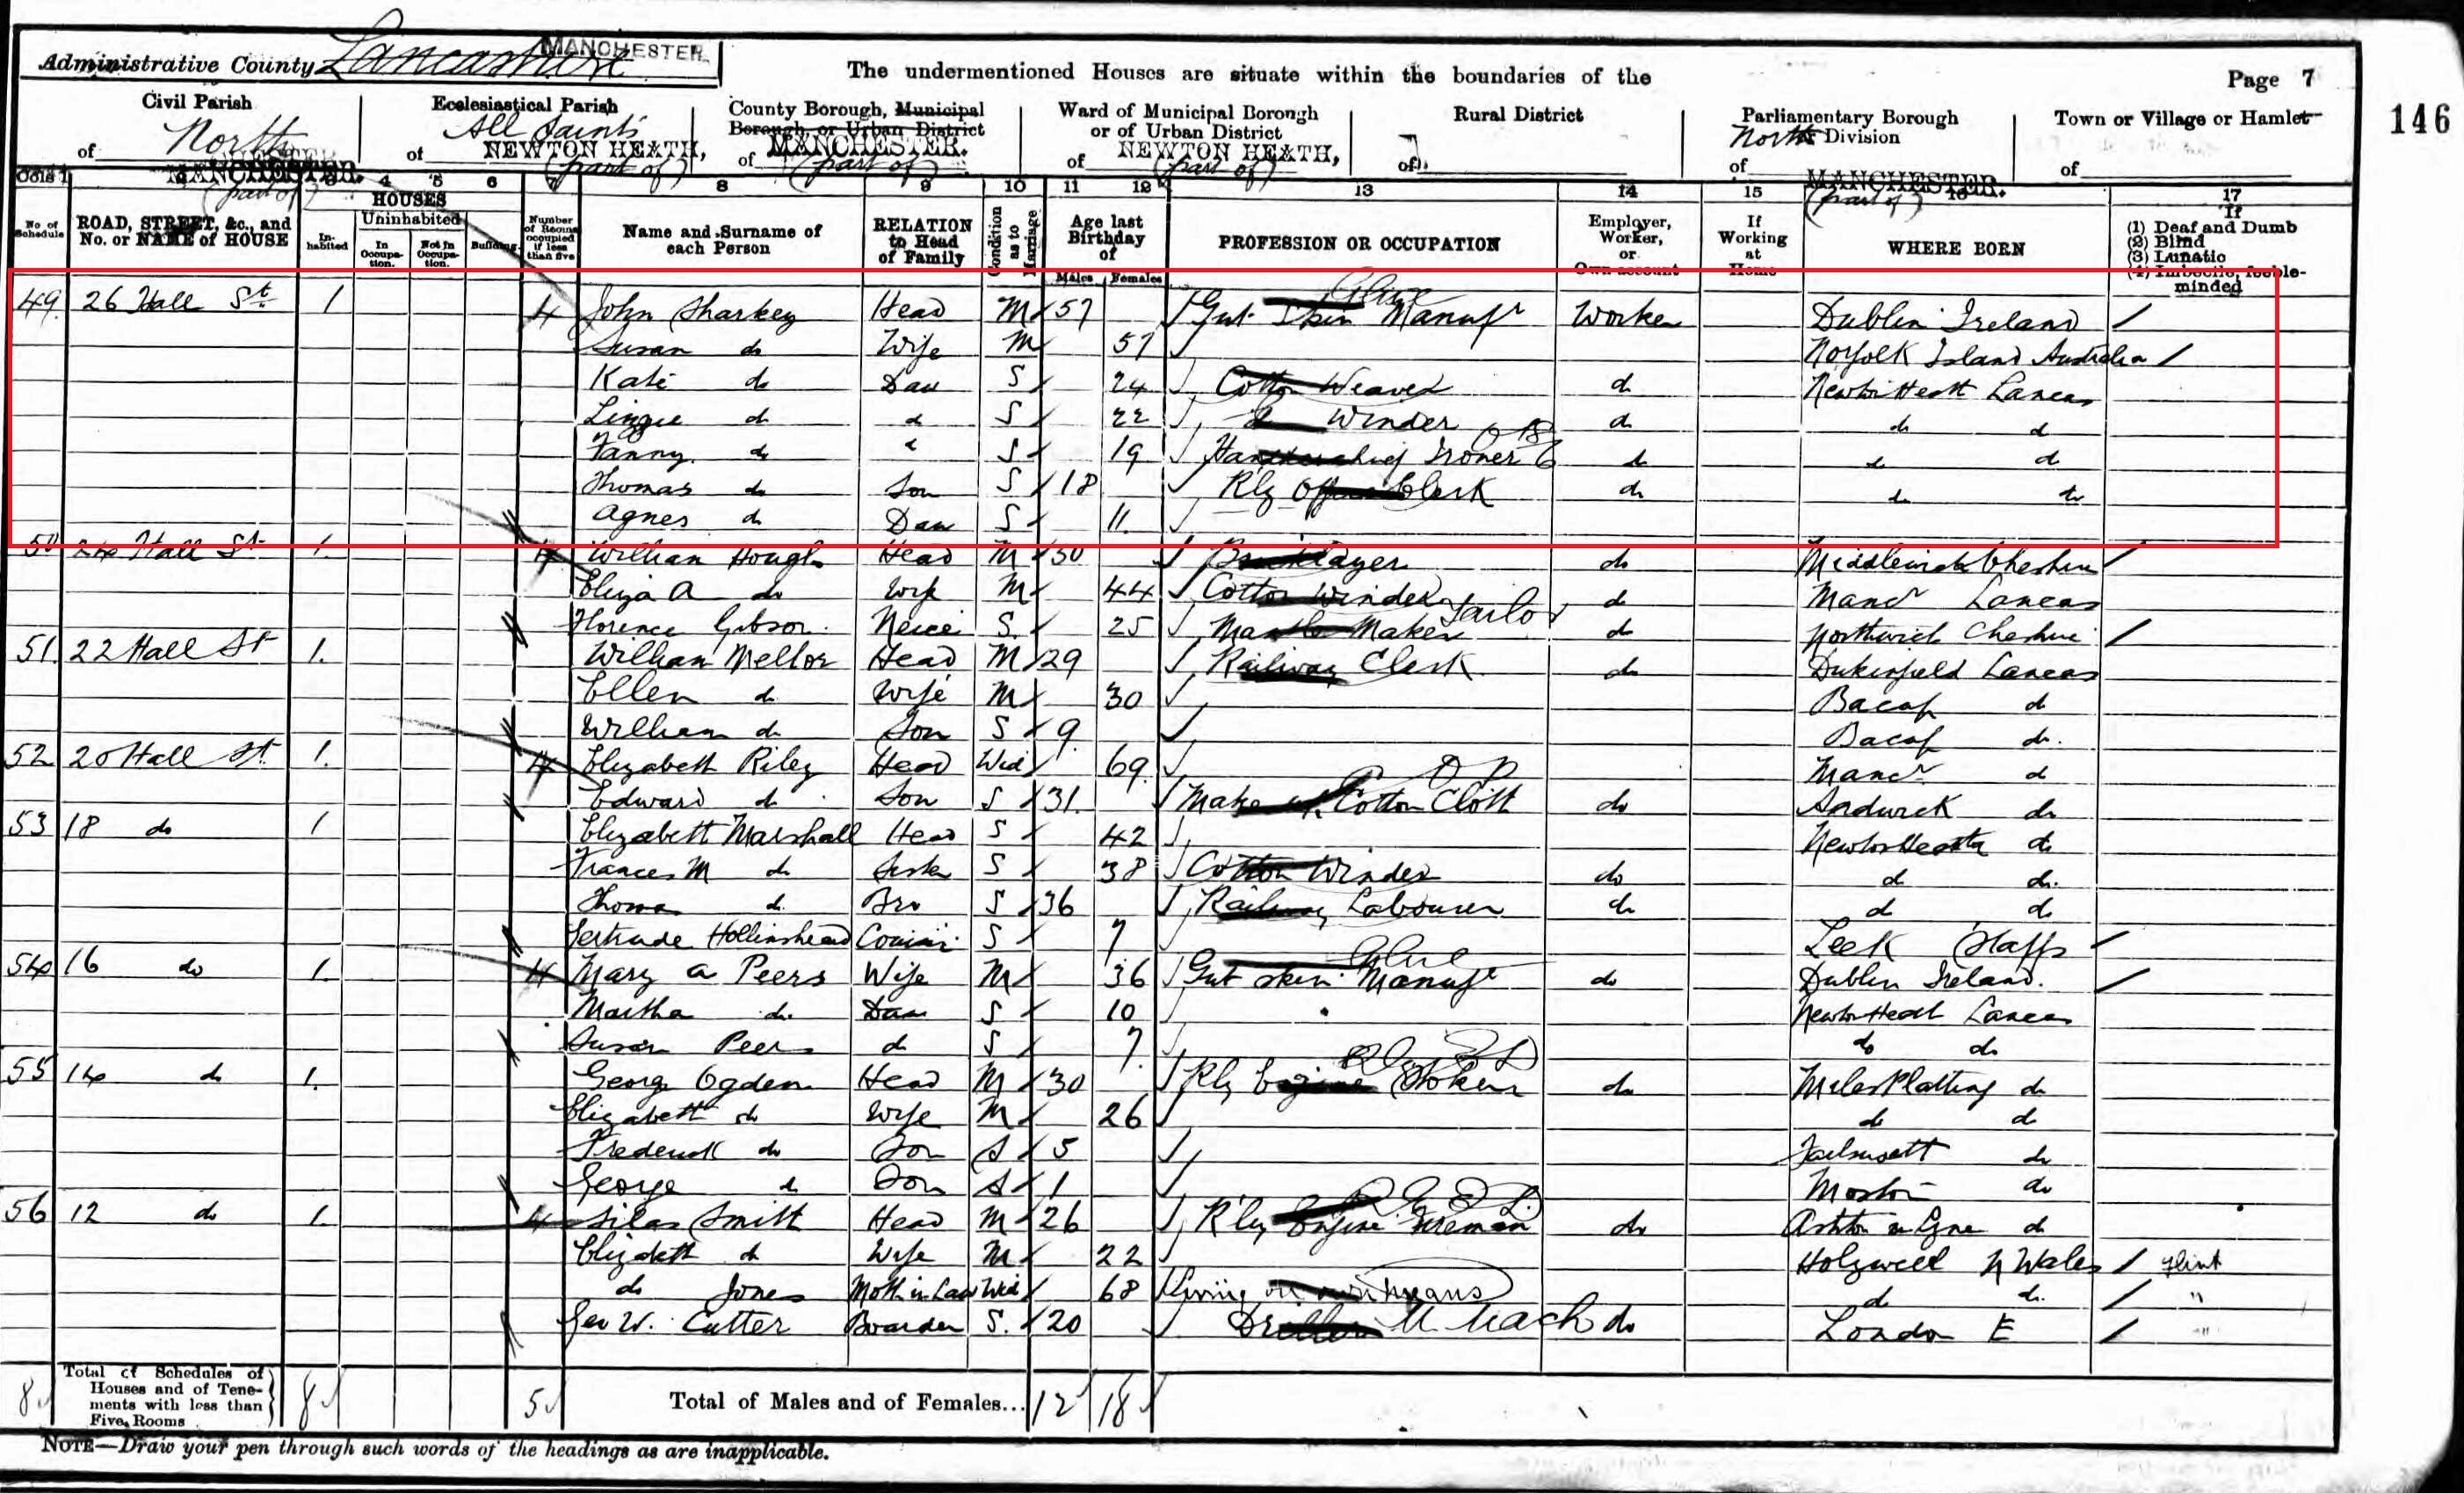 Administrative County Lancashire MANCHESTER
The undermentioned Houses are situate within the boundaries of the
Page 7
146
Civil Parish of North MANCHESTER. (part of)
Ecclesiastical Parish of All Saints NEWTON HEATH, (part of)
County Borough, Municipal Borough, or Urban District of MANCHESTER. (part of)
Ward of Municipal Borough or of Urban District of NEWTON HEATH, (part of)
Rural District of
Parliamentary Borough North Division of MANCHESTER. (part of)
Town or Village or Hamlet of
Cols 1 4 5 6 7 8 9 10 11 12 13 14 15 16 17
No. of Schedule
ROAD, STREET, &c., and No. or NAME of HOUSE
HOUSES
In-habited
Uninhabited
In Occupa-tion.
Not in Occupa-tion.
Building.
Number of Rooms occupied if less than five
Name and Surname of each Person
RELATION to Head of Family
Condition as to Marriage
Age last Birthday of
Males Females
PROFESSION OR OCCUPATION
Employer, Worker, or Own account
If Working at Home
WHERE BORN
If (1) Deaf and Dumb (2) Blind (3) Lunatic (4) Imbecile, feeble-minded
49 26 Hall St 1 4 John Sharkey Head M 57 Gut Skin Manufr Glue Worker Dublin Ireland
Susan do Wife M 57 Norfolk Island Australia
Kate do Dau S 24 Cotton Weaver do Newton Heath Lancas
Lizzie do d S 22 do Winder do do d
Fanny do d S 19 Handkerchief Ironer do do d
Thomas do Son S 18 Rly Office Clerk do do do
Agnes do Dau S 11
50 24 Hall St 1 4 William Hough Head M 50 Bricklayer do Middlewich Cheshire
Eliza A do Wife M 44 Cotton Winder do Manr Lancas
Florence Gibson Neice S 25 Mantle Maker Tailor do Northwich Cheshire
51 22 Hall St 1 William Mellor Head M 29 Railway Clerk do Dukinfield Lancas
Ellen do Wife M 30 Bacup do
William do Son S 9 Bacup do
52 20 Hall St 1 4 Elizabeth Riley Head Wid 69 Manr do
Edward do Son S 31 Cotton Cloth do Ardwick do
53 18 do 1 Elizabeth Marshall Head S 42 Newton Heath do
Frances M do Sister S 38 Cotton Winder do d do
Thomas do Bro S 36 Railway Labourer do d do
Gertrude Hollinshead Cousin S 7 Leek Staffs
54 16 do 1 4 Mary A Peers Wife M 36 Gut Skin Manufr Glue do Dublin Ireland
Martha do Dau S 10 Newton Heath Lancas
Susan Peers d S 7 do do
55 14 do 1 George Ogden Head M 30 Rly Engine Stoker do Miles Platting do
Elizabeth do Wife M 26 do do
Frederick do Son S 5 Failsworth do
George d Son S 1 Moston do
56 12 do 1 4 Silas Smith Head M 26 Rly Engine Fireman do Ashton u Lyne do
Elizabeth do Wife M 22 Holywell N Wales Flint
do Jones Moth in Law Wid 68 Living on means do do "
Geo W. Cutter Boarder S 20 Driller do London E "
8 Total of Schedules of Houses and of Tene-ments with less than Five Rooms 8 5 Total of Males and of Females... 12 18
NOTE—Draw your pen through such words of the headings as are inapplicable.